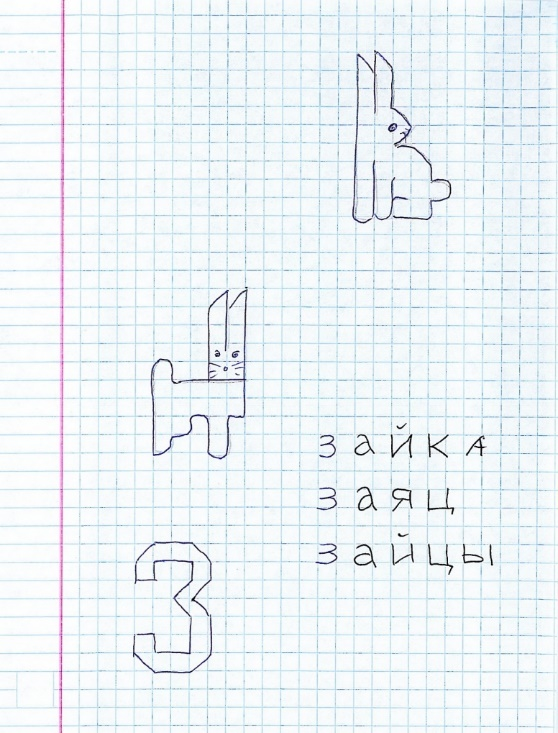 зайка
заяц
зайцы
З